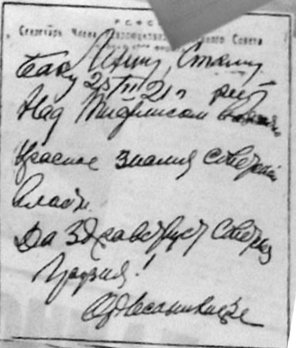 Р.С.Ф.С.Р.
Секретарь Члена Революционного Совета
Ленину, Сталину
Баку 25/II 21 г.
Над Тифлисом
Красное знамя советской
власти.
Да здравствует Советская
Грузия!
Орджоникидзе